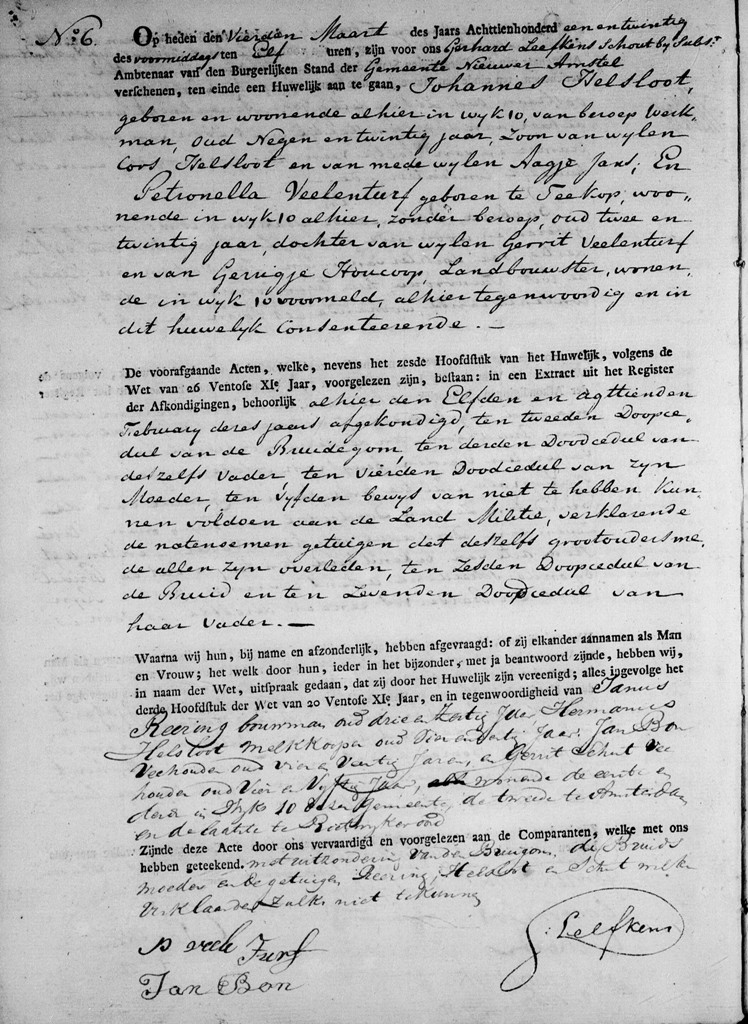 No. 6. Op heden den Vierden Maart des Jaars Achttienhonderd een en twintig
des voormiddags ten Elf uren, zijn voor ons Gerhard Leefkens Schout by Subst.
Ambtenaar van den Burgerlijken Stand der Gemeente Nieuwer Amstel
verschenen, ten einde een Huwelijk aan te gaan, Johannes Helsloot,
geboren en woonende alhier in wyk 10, van beroep Werk-
man, oud Negen en twintig jaar, Zoon van wylen
Cors Helsloot en van mede wylen Aagje Jans; En
Petronella Veelenturf geboren te Teckop, woo-
nende in wyk 10 alhier, zonder beroep, oud twee en
twintig jaar, dochter van wylen Gerrit Veelenturf
en van Gerrigje Houcoop, Landbouwster, wonen-
de in wyk 10 voormeld, alhier tegenwoordig en in
dit huwelyk Consenteerende. —
De voorafgaande Acten, welke, nevens het zesde Hoofdstuk van het Huwelijk, volgens de
Wet van 26 Ventose XIe Jaar, voorgelezen zijn, bestaan: in een Extract uit het Register
der Afkondigingen, behoorlijk alhier den Elfden en Agttienden
February dezes jaars afgekondigd, ten tweeden Doopce-
dul van de Bruidegom, ten derden Doodcedul van
deszelfs Vader, ten Vierden Doodcedul van zyn
Moeder, ten Vyfden bewys van niet te hebben kun-
nen voldoen aan de Land Militie, verklarende
de natenoemen getuigen dat deszelfs grootouders me-
de allen zyn overleden, ten Zesden Doopcedul van
de Bruid en ten Zevenden Doodcedul van
haar Vader. —
Waarna wij hun, bij name en afzonderlijk, hebben afgevraagd: of zij elkander aannamen als Man
en Vrouw; het welk door hun, ieder in het bijzonder, met ja beantwoord zijnde, hebben wij,
in naam der Wet, uitspraak gedaan, dat zij door het Huwelijk zijn vereenigd; alles ingevolge het
derde Hoofdstuk der Wet van 20 Ventose XIe Jaar, en in tegenwoordigheid van Janus
Reering bouwman oud drie en Jaar, Hermanus
Helsloot melkkooper oud Vier en Jaar, Jan Bon
Veehouder oud vier en Veertig Jaren, en Gerrit Schut Vee
houder oud Vier en Vyftig Jaar, wonende de eerste en
derde in Wyk 10 dezer Gemeente, de tweede te Amsterdam
en de laatste te Rietwykeroord
Zijnde deze Acte door ons vervaardigd en voorgelezen aan de Comparanten, welke met ons
hebben geteekend. met uitzondering van den Bruigom, des Bruids
moeder en de getuigen Reering, Helsloot en Schut welke
verklaarden zulks niet te kunnen
P veele Turf
G: Leefkens
Jan Bon